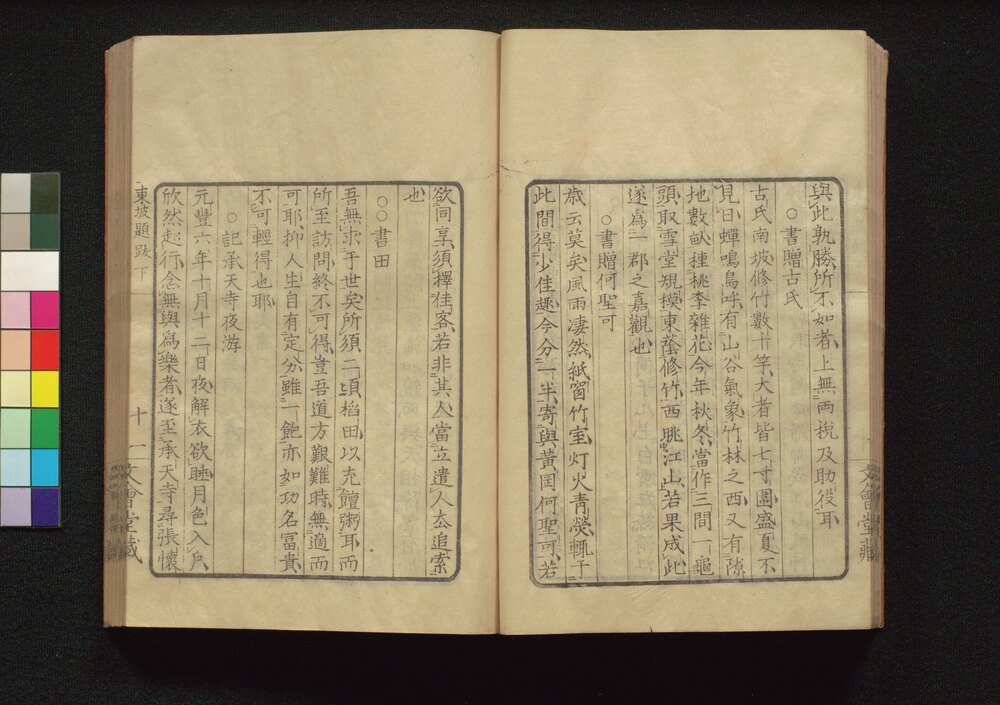 與此孰勝所不如者上無兩稅及助役耳
○書贈古氏
古氏南坡修竹數十竿大者皆七寸圍盛夏不
見日蟬鳴鳥呼有山谷氣象竹林之西又有隙
地數畝種桃李雜花今年秋冬當作三間一龜
頭取雪堂規模東蔭修竹西眺江山若果成此
遂爲一郡之嘉觀也
○書贈何聖可
歲云莫矣風雨凄然紙窗竹室灯火青熒輒于
此間得少佳趣今分一半寄與黃岡何聖可若
欲同享須擇佳客若非其人當立遣人去追索
也
○○書田
吾無求于世矣所須二頃稻田以充饘粥耳而
所至訪問終不可得豈吾道方艱難時無適而
可耶抑人生自有定分雖一飽亦如功名富貴
不可輕得也耶
○記承天寺夜游
元豐六年十月十二日夜解衣欲睡月色入戶
欣然起行念無與爲樂者遂至承天寺尋張懷
東坡題跋下
十一
文會堂藏